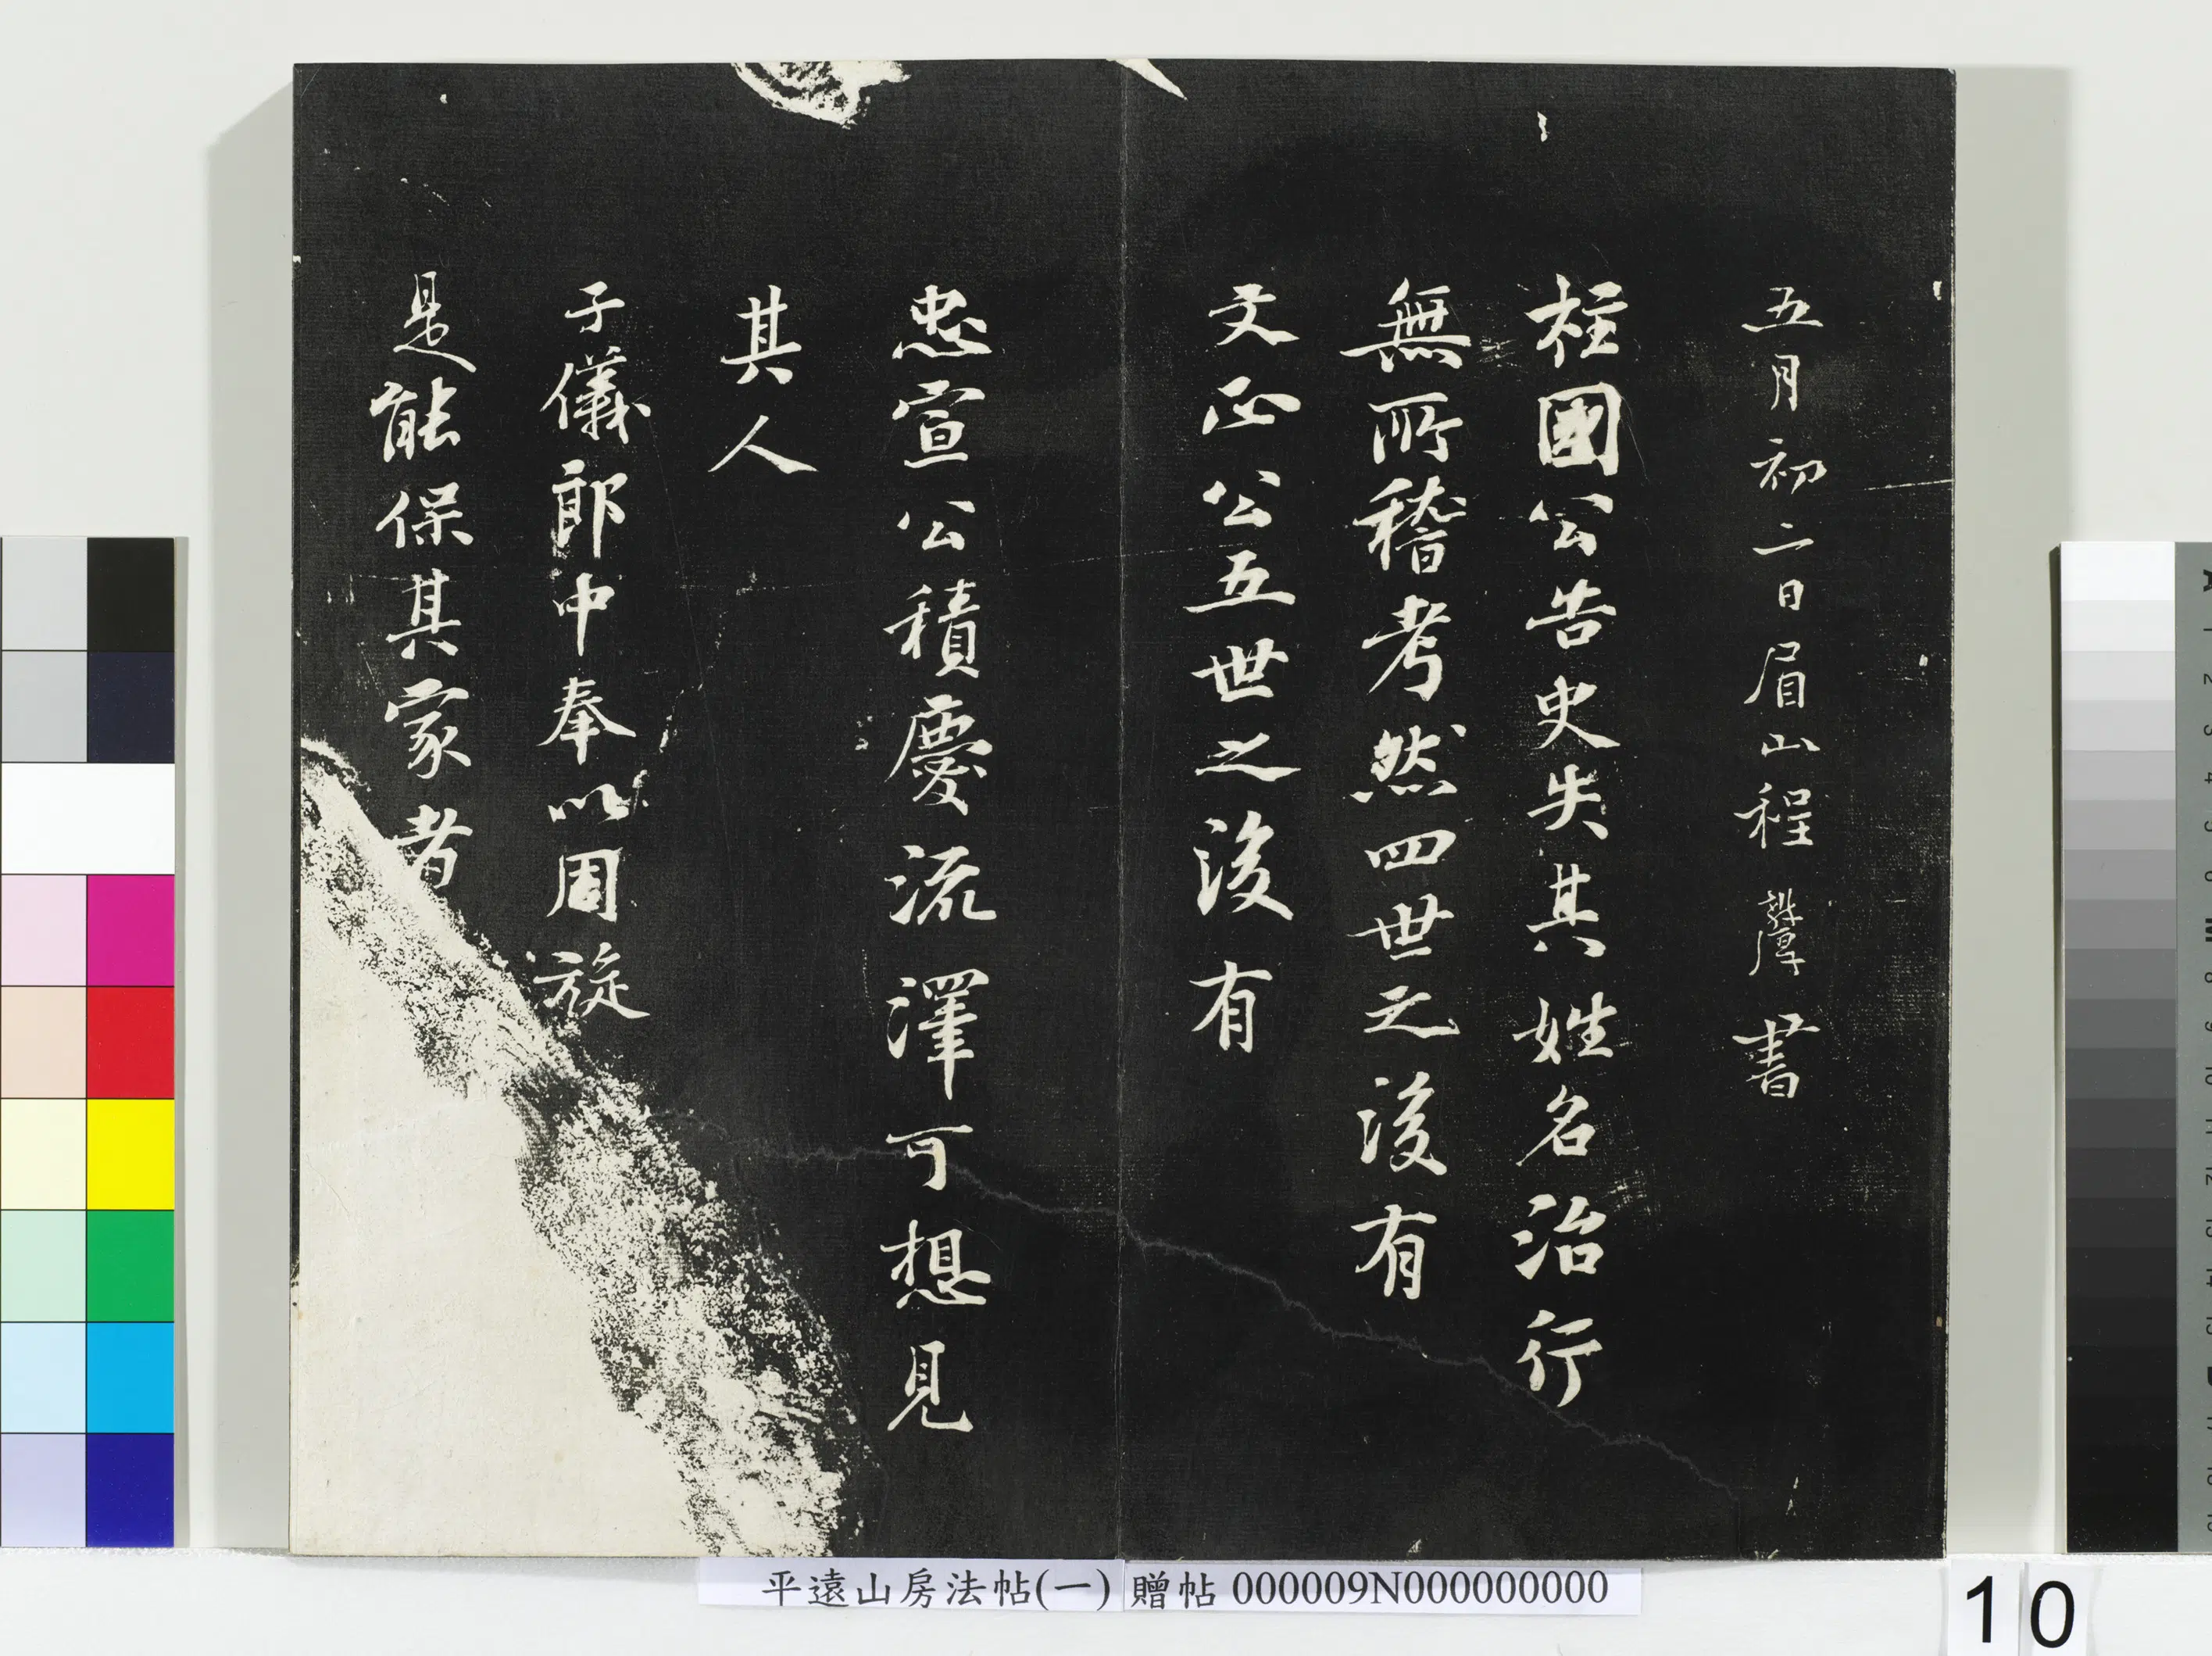 五月初二日眉山程書
柱國公告史失其姓名治行
無所稽考然四世之後有
文正公五世之後有
忠宣公積慶流澤可想見
其人
子儀郎中奉以周旋
是能保其家者
平遠山房法帖(一) 贈帖 000009N000000000
10